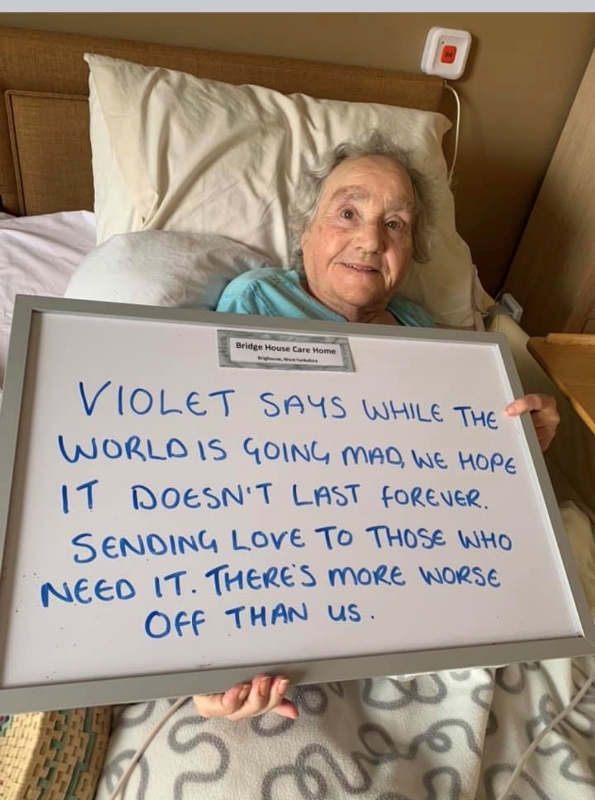 Bridge House Care Home
Brighouse, West Yorkshire
VIOLET SAYS WHILE THE
WORLD IS GOING MAD, WE HOPE
IT DOESN'T LAST FOREVER.
SENDING LOVE TO THOSE WHO
NEED IT. THERE'S MORE WORSE
OFF THAN US.